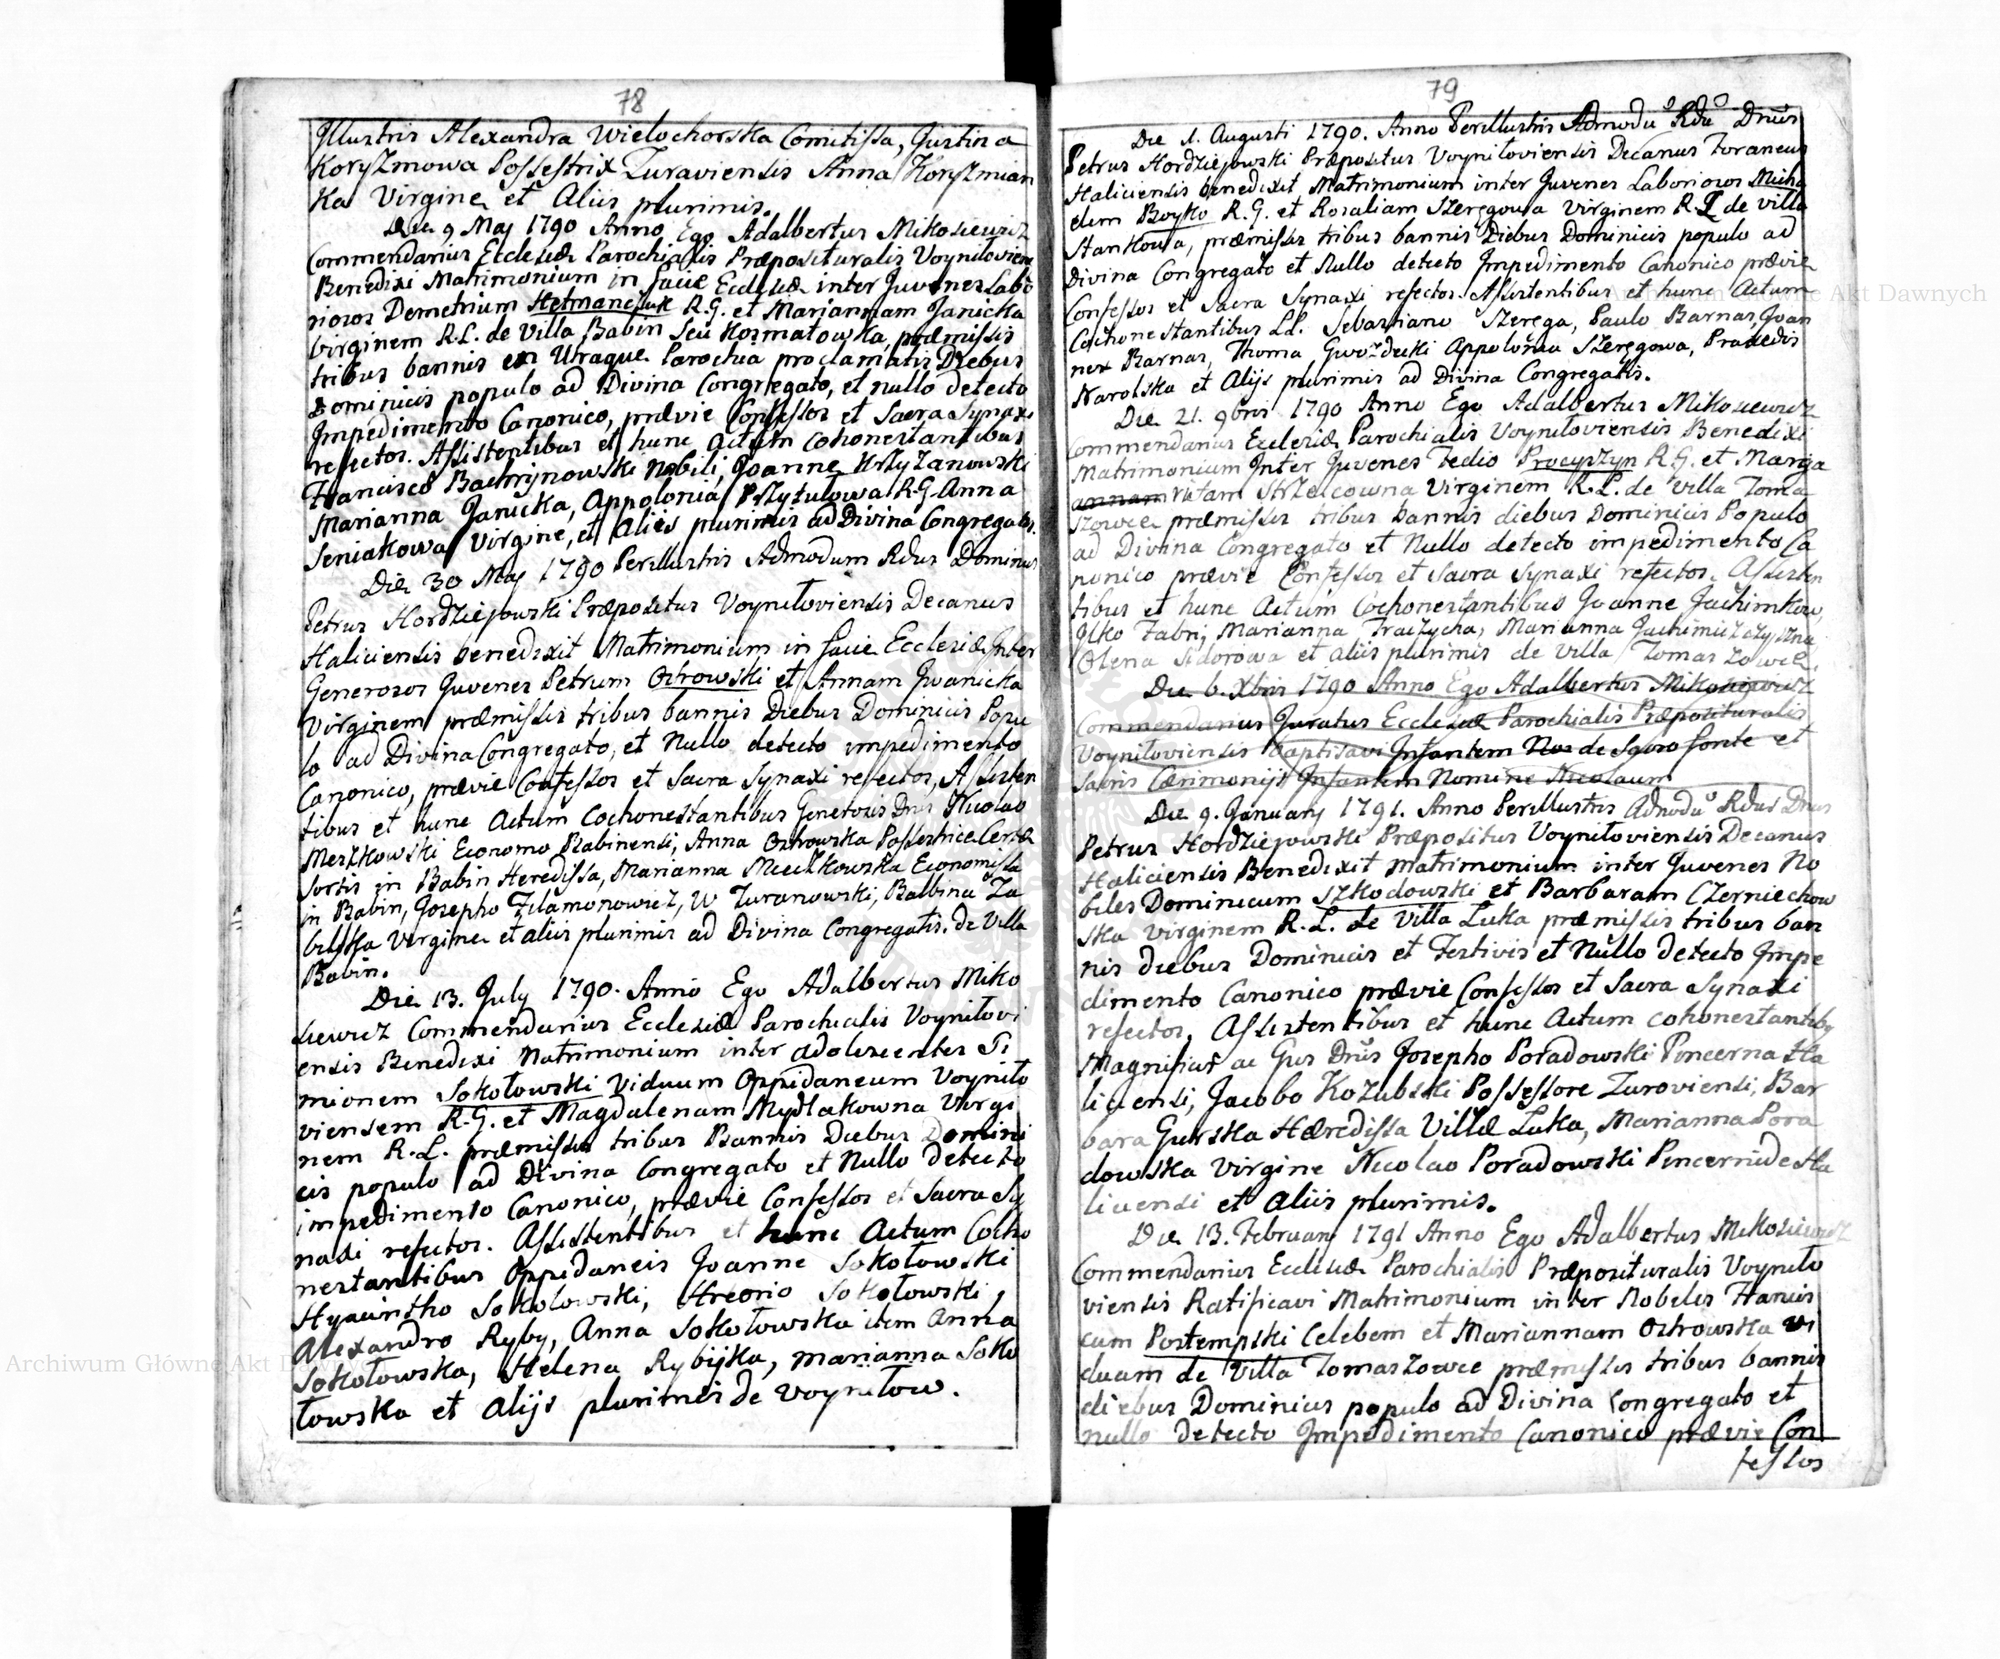 78
Illustris Alexandra Wielochorska Comitissa, Justina
Koryzmowa Possestrix Zuraviensis Anna Koryzmian
ka Virgine et Aliis plurimis.
Die 9 May 1790 Anno Ego Adalbertus Mikosiewicz
Commendarius Ecclesiæ Parochialis Præposituralis Voyniloviens
Benedixi Matrimonium in facie Ecclesiæ inter Juvenes Labo
riosos Demetrium Hetmanczuk R.G. et Mariannam Janicka
virginem R.L. de Villa Babin Seu Kosmatowka, præmissis
tribus bannis ex Utraque Parochia proclamatis Diebus
Dominicis populo ad Divina Congregato, et nullo detecto
Impedimento Canonico, prævie Confessos et Sacra Synaxi
refectos. Assistentibus et hunc Actum cohonestantibus
Francisco Bachrynowski Nobili, Joanne Krzyzanowski
Marianna Janicka, Appolonia Przytułowa R.G. Anna
Seniakowa Virgine, et Aliis plurimis ad Divina Congregatis.
Die 30 May 1790 Perillustris Admodum Rdus Dominus
Petrus Hordziejowski Præpositus Voyniłoviensis Decanus
Haliciensis benedixit Matrimonium in facie Ecclesiæ Inter
Generosos Juvenes Petrum Ostrowski et Annam Jwanicka
Virginem præmissis tribus bannis Diebus Dominicis Popu
lo ad Divina Congregato, et Nullo detecto impedimento
Canonico, prævie Confessos et Sacra Synaxi refectos, Assisten
tibus et hunc Actum Cochonestantibus Generosis Dnis Nicolao
Meszkowski Economo Babinensi, Anna Ostrowska Possestrice Certæ
Sortis in Babin Heredissa, Marianna Mieczkowska Economissa
in Babin, Josepho Filamonowicz, W Zuranowski, Balbina Za
bilska virgine et aliis plurimis ad Divina Congregatis. de Villa
Babin.
Die 13. July 1790. Anno Ego Adalbertus Miko
siewicz Commendarius Ecclesiæ Parochialis Voyniłovi
ensis Benedixi Matrimonium inter adolescentes Si
mionem Sokołowski Viduum Oppidaneum Voyniło
viensem R.G. et Magdalenam Mydlakowna Virgi
nem R.L. præmissis tribus Bannis Diebus Domini
cis populo ad Divina Congregato et Nullo detecto
impedimento Canonico, prævie Confessos et Sacra Sy
naxi refectos. Assistentibus et hunc Actum Cocho
nestantibus Oppidaneis Joanne Sokołowski
Hyacintho Sokołowski, Hreorio Sokołowski,
Alexandro Ryby, Anna Sokołowska item Anna
Sokołowska, Helena Rybijka, Marianna Soko
łowska et Alijs plurimis de Voyniłow.
79
Die 1. Augusti 1790. Anno Perillustris Admodũ Rdũ Dnũs
Petrus Hordziejowski Præpositus Voyniłoviensis Decanus Foraneus
Haliciensis benedixit Matrimonium inter Juvenes Laboriosos Micha
elem Boyko R.G. et Rosaliam Szeregowa Virginem R.L de villa
Stankowa, præmissis tribus bannis Diebus Dominicis populo ad
Divina Congregato et Nullo detecto Impedimento Canonico prævie
Confessos et Sacra Synaxi refectos. Assistentibus et hunc Actum
Cochonestantibus LL. Sebastiano Szerega, Paulo Barnas, Joan
nes Barnas, Thoma Gwozdecki Appolonia Szeręgowa, Praxedis
Narolska et Alijs plurimis ad Divina Congregatis.
Die 21. 9bris 1790 Anno Ego Adalbertus Mikosiewicz
Commendarius Ecclesiæ Parochialis Voyniloviensis Benedixi
Matrimonium Inter Juvenes Fedio Procyszyn R.G. et Marga
annam ritam Strzelcowna Virginem R.L. de Villa Toma
szowce præmissis tribus bannis diebus Dominicis Populo
ad Divina Congregato et Nullo detecto impedimento Ca
nonico prævie Confessos et Sacra Synaxi refectos. Assisten
tibus et hunc Actum Cochonestantibus Joanne Jachimkow,
Ilko Fabry Marianna Fraczycha, Marianna Juchimiszczyszna
Olena Sidorowa et aliis plurimis de villa Tomaszowce.
Die 6. Xbris 1790 Anno Ego Adalbertus Mikosiewicz
Commendarius Juratus Ecclesiæ Parochialis Præposituralis
Voyniłoviensis baptisavi Infantem Nos de Sacro fonte et
Sacris Cærimonijs Infantem Nomine Nicolaum
Die 9. January 1791. Anno Perillustris Admodũ Rdus Dnus
Petrus Hordziejowski Præpositus Voyniłoviensis Decanus
Haliciensis Benedixit Matrimonium inter Juvenes No
biles Dominicum Szkodowski et Barbaram Czerniechow
ska virginem R.L. de Villa Luka præmissis tribus ban
nis diebus Dominicis et Festivis et Nullo detecto Impe
dimento Canonico prævie Confessos et Sacra Synaxi
refectos, Assistentibus et hunc Actum cohonestantibg
Magnificus ac Gnus Dnus Josepho Poradowski Pincerna Ha
liciensi, Jacobo Kozubski Possessore Zuroviensi, Bar
bara Gurska Hæredissa Villæ Luka, Marianna Pora
dowska virgine Nicolao Poradowski Pincernide Ha
liciensi et Aliis plurimis.
Die 13. February 1791 Anno Ego Adalbertus Mikosiewicz
Commendarius Ecclesiæ Parochialis Præposituralis Voyniło
viensis Ratificavi Matrimonium inter Nobiles Francis
cum Postempski Celebem et Mariannam Ostrowska vi
duam de Villa Tomaszowce præmissis tribus bannis
diebus Dominicis populo ad Divina Congregato et
nullo detecto Impedimento Canonico prævie Con
fessos
Archiwum Główne Akt Dawnych
Archiwum Główne Akt Dawnych